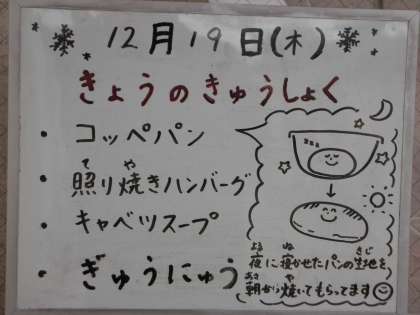 12月19日(木)
きょうのきゅうしょく
・コッペパン
・照り焼きハンバーグ
て や
・キャベツスープ
・ぎゅうにゅう
zzz
よる ね きじ
夜に寝かせたパンの生地を
あさ や
朝から焼いてもらってます